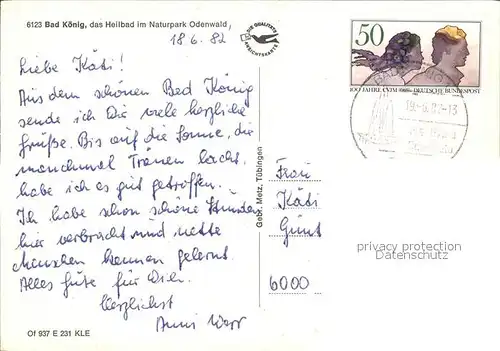 6123 Bad König, das Heilbad im Naturpark Odenwald
18.6.82
DIE QUALITÄTS
ANSICHTSKARTE
50
100 JAHRE CVJM 1982 DEUTSCHE BUNDESPOST
BAD KÖNIG
19.-6.82-13
Liebe Käti!
Aus dem schönen Bad König
sende ich Dir viele herzliche
Grüße. Bis auf die Sonne, die
manchmal Tränen lacht,
habe ich es gut getroffen.
Ich habe schon schöne Stunden
hier verbracht und nette
Menschen kennen gelernt.
Alles Gute für Dich.
Herzlichst
Anni
Gebr. Metz, Tübingen
Frau
Käti
6000
privacy protection
Datenschutz
Of 937 E 231 KLE